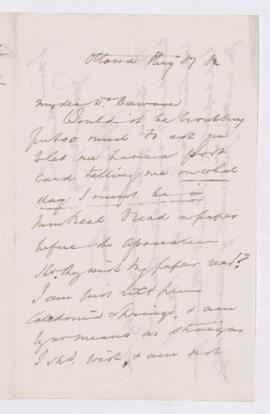 Ottawa Aug 17 82
My dear Dr Dawson
Would it be troubling
you too much to ask you
to let me have a post
card telling me on what
day I must be in
Montreal to read a paper
before the Association
to
I am just returned from
Caledonia Springs, & am
by no means as strong as
I shd. wish, & am not